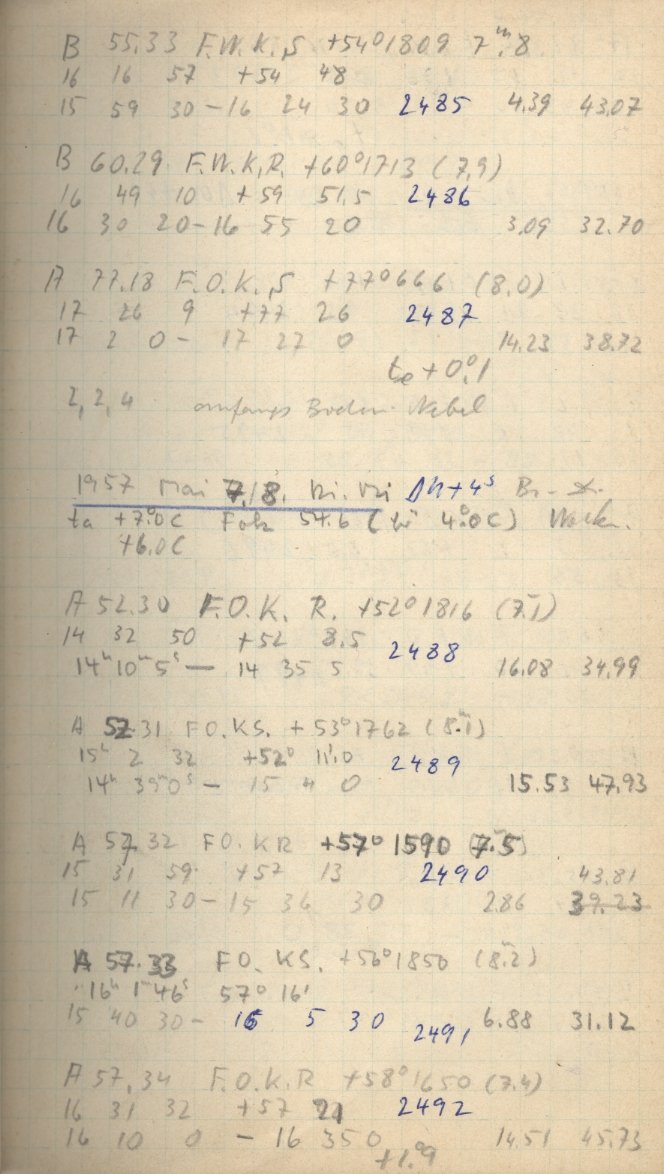 B 55.33 F.W.K.S +54°1809 7ᵐ.8
16 16 57 +54 48
15 59 30 – 16 24 30 2485 4.39 43.07
B 60.29 F.W.K.R. +60°1713 (7,9)
16 49 10 +59 51.5 2486
16 30 20 – 16 55 20 3,09 32.70
A 77.18 F.O.K.S +77°666 (8.0)
17 26 9 +77 26 2487
17 2 0 – 17 27 0 14.23 38.72
te +0°,1
2,2,4 anfangs Boden Nebel
1957 Mai 7./8. Δh+4ˢ
ta +7.0C Fok 57.6 ( 4.0C)
+6.0C
A 52.30 F.O.K. R. +52°1816 (7.1)
14 32 50 +52 8.5 2488
14ʰ10ᵐ5ˢ – 14 35 5 16.08 34.99
A 52.31 FO.KS. +53°1762 (8.1)
15ʰ 2 32 +52° 11'.0 2489
14ʰ 39ᵐ0ˢ – 15 4 0 15.53 47.93
A 57.32 FO.KR +57°1590 7.5)
15 31 59 +57 13 2490 43.81
15 11 30 – 15 36 30 2.86 39.23
A 57.33 FO.KS. +56°1850 (8.2)
16ʰ 1ᵐ46ˢ 57° 16'
15 40 30 – 16 5 30 2491 6.88 31.12
A 57.34 F.O.K.R +58°1650 (7.4)
16 31 32 +57 21 2492
16 10 0 – 16 35 0 14.51 45.73
+1.°9